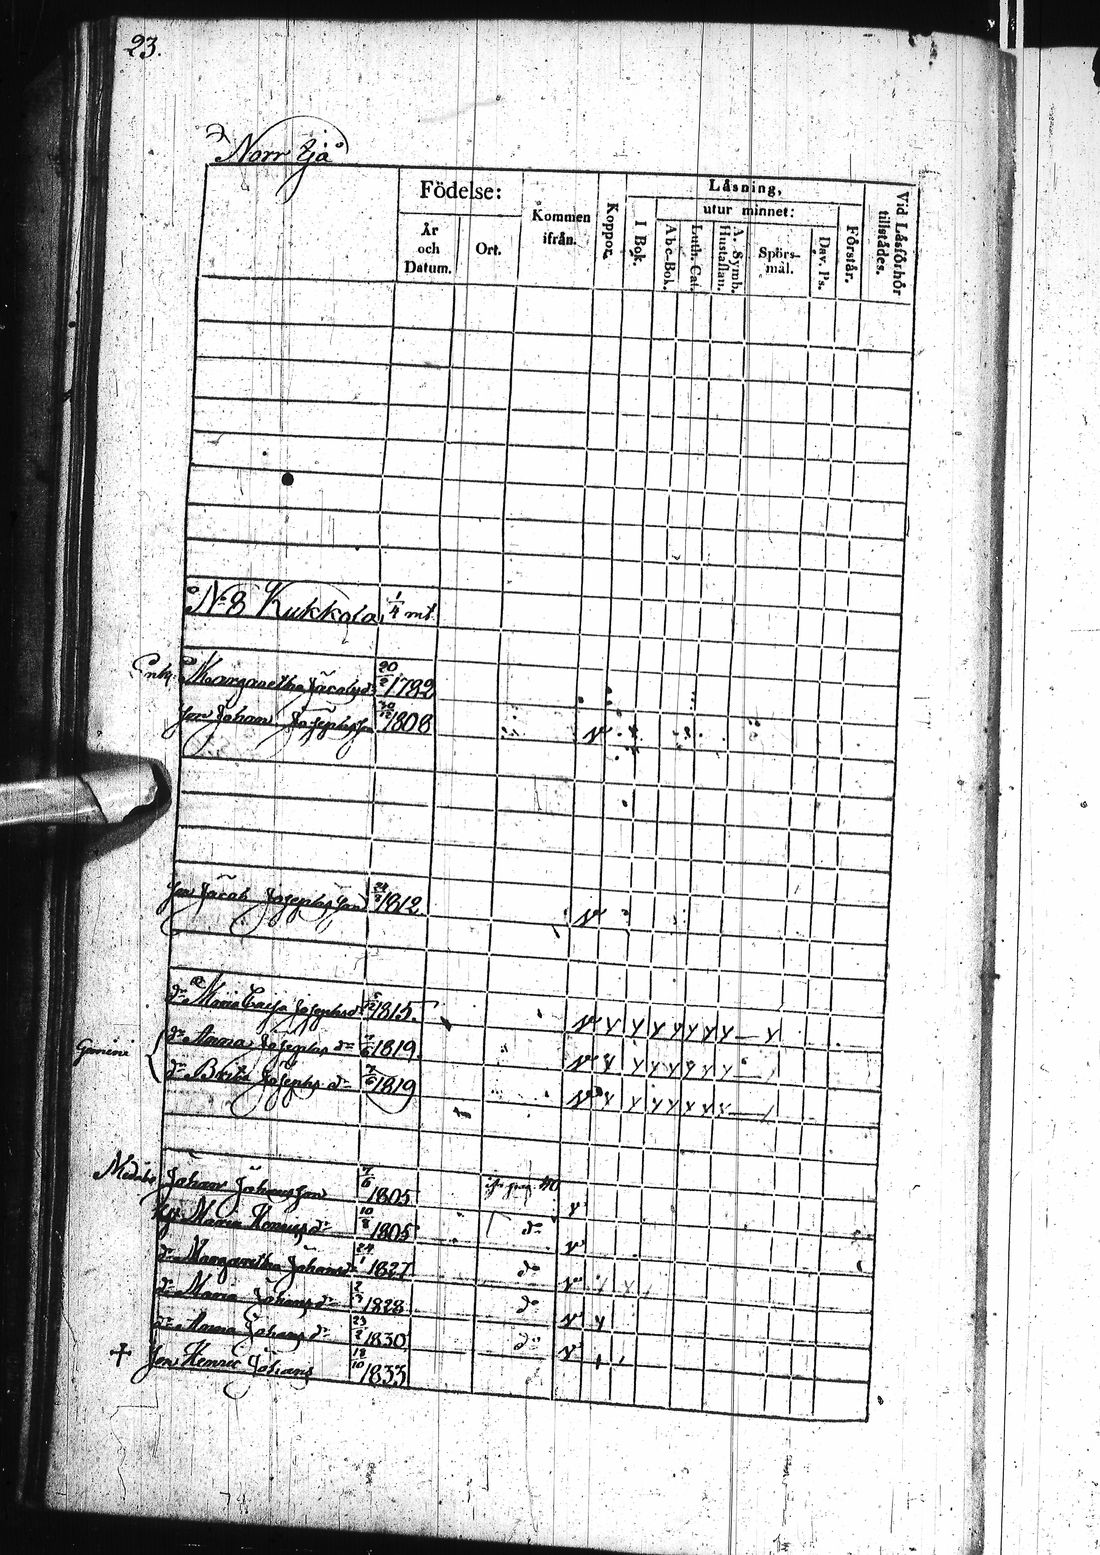 23.
Norr Ejä
Födelse:
År och Datum.
Ort.
Kommen ifrån.
Koppor.
Läsning,
I Bok.
utur minnet:
Abc-Bok.
Luth. Cat.
A. Symb. Hustaflan.
Spörs-mål.
Dav. Ps.
Förstår.
Vid Läsförhör tillstädes.
N:o 8 Kukkola 1/4 mt.
Enk. Margaretha Jacobsdr 20/2 1782
Son Johan Josephsson 1808 v
Son Jacob Josephsson 1812 v
dr Maria Caisa Josephsdr 1815 v y y y y y y y — y
Gemini
dr Anna Josephs dr 7/6 1819 v y y y y y y
dr Brita Josephs dr 7/6 1819 v y y y y y y —
Johan Johansson 7/6 1805 pag. 40 v
Maria Henricsdr 10/8 1805 do v
dr Margaretha Johansdr 24/1 1827 do v
dr Maria Johansdr 1828 do v y
dr Anna Johans dr 23/2 1830 do v
† Son Henric Johans 18/10 1833